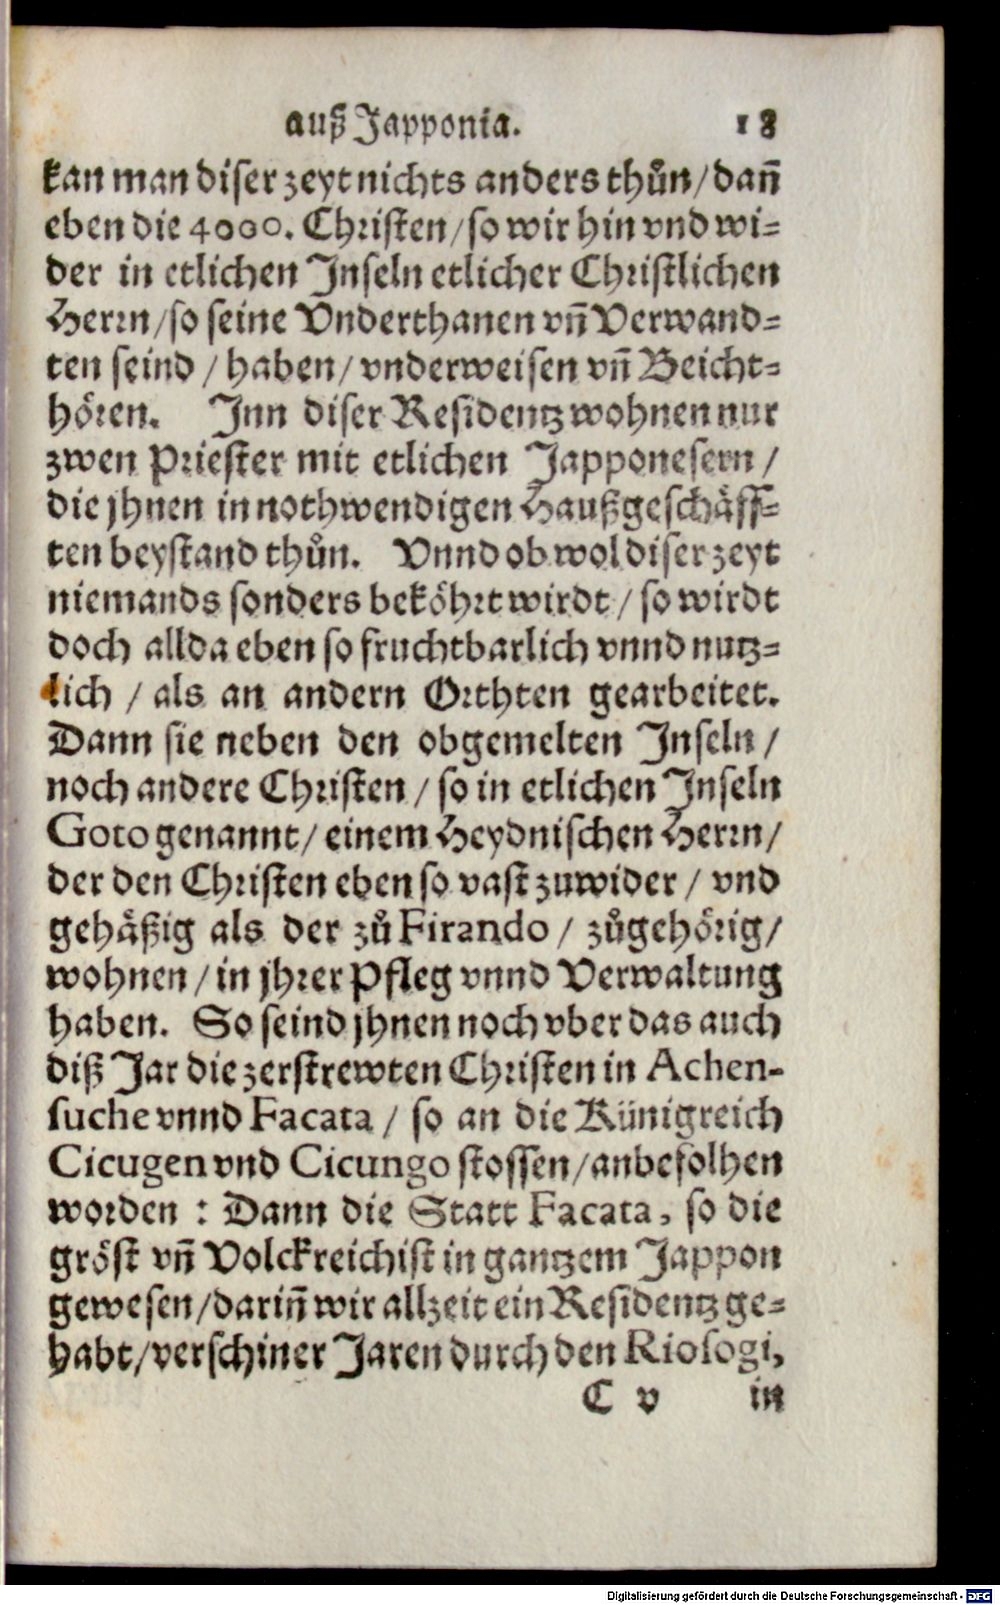 auß Japponia. 18
kan man diser zeyt nichts anders thůn/ dañ
eben die 4000. Christen/ so wir hin vnd wi-
der in etlichen Inseln etlicher Christlichen
Herrn/ so seine Vnderthanen vñ Verwand-
ten seind / haben/ vnderweisen vñ Beicht-
hören. Inn diser Residentz wohnen nur
zwen Priester mit etlichen Japponesern /
die jhnen in nothwendigen Haußgeschäff-
ten beystand thůn. Vnnd ob wol diser zeyt
niemands sonders beköhrt wirdt / so wirdt
doch allda eben so fruchtbarlich vnnd nutz-
lich / als an andern Orthten gearbeitet.
Dann sie neben den obgemelten Inseln /
noch andere Christen / so in etlichen Inseln
Goto genannt/ einem Heydnischen Herrn/
der den Christen eben so vast zuwider / vnd
gehäßig als der zů Firando / zůgehörig/
wohnen / in jhrer Pfleg vnnd Verwaltung
haben. So seind jhnen noch vber das auch
diß Jar die zerstrewten Christen in Achen-
suche vnnd Facata / so an die Künigreich
Cicugen vnd Cicungo stossen/anbefolhen
worden : Dann die Statt Facata, so die
gröst vñ Volckreichist in gantzem Jappon
gewesen/darinn̄ wir allzeit ein Residentz ge-
habt/verschiner Jaren durch den Riosogi,
C v in
Digitalisierung gefördert durch die Deutsche Forschungsgemeinschaft - DFG